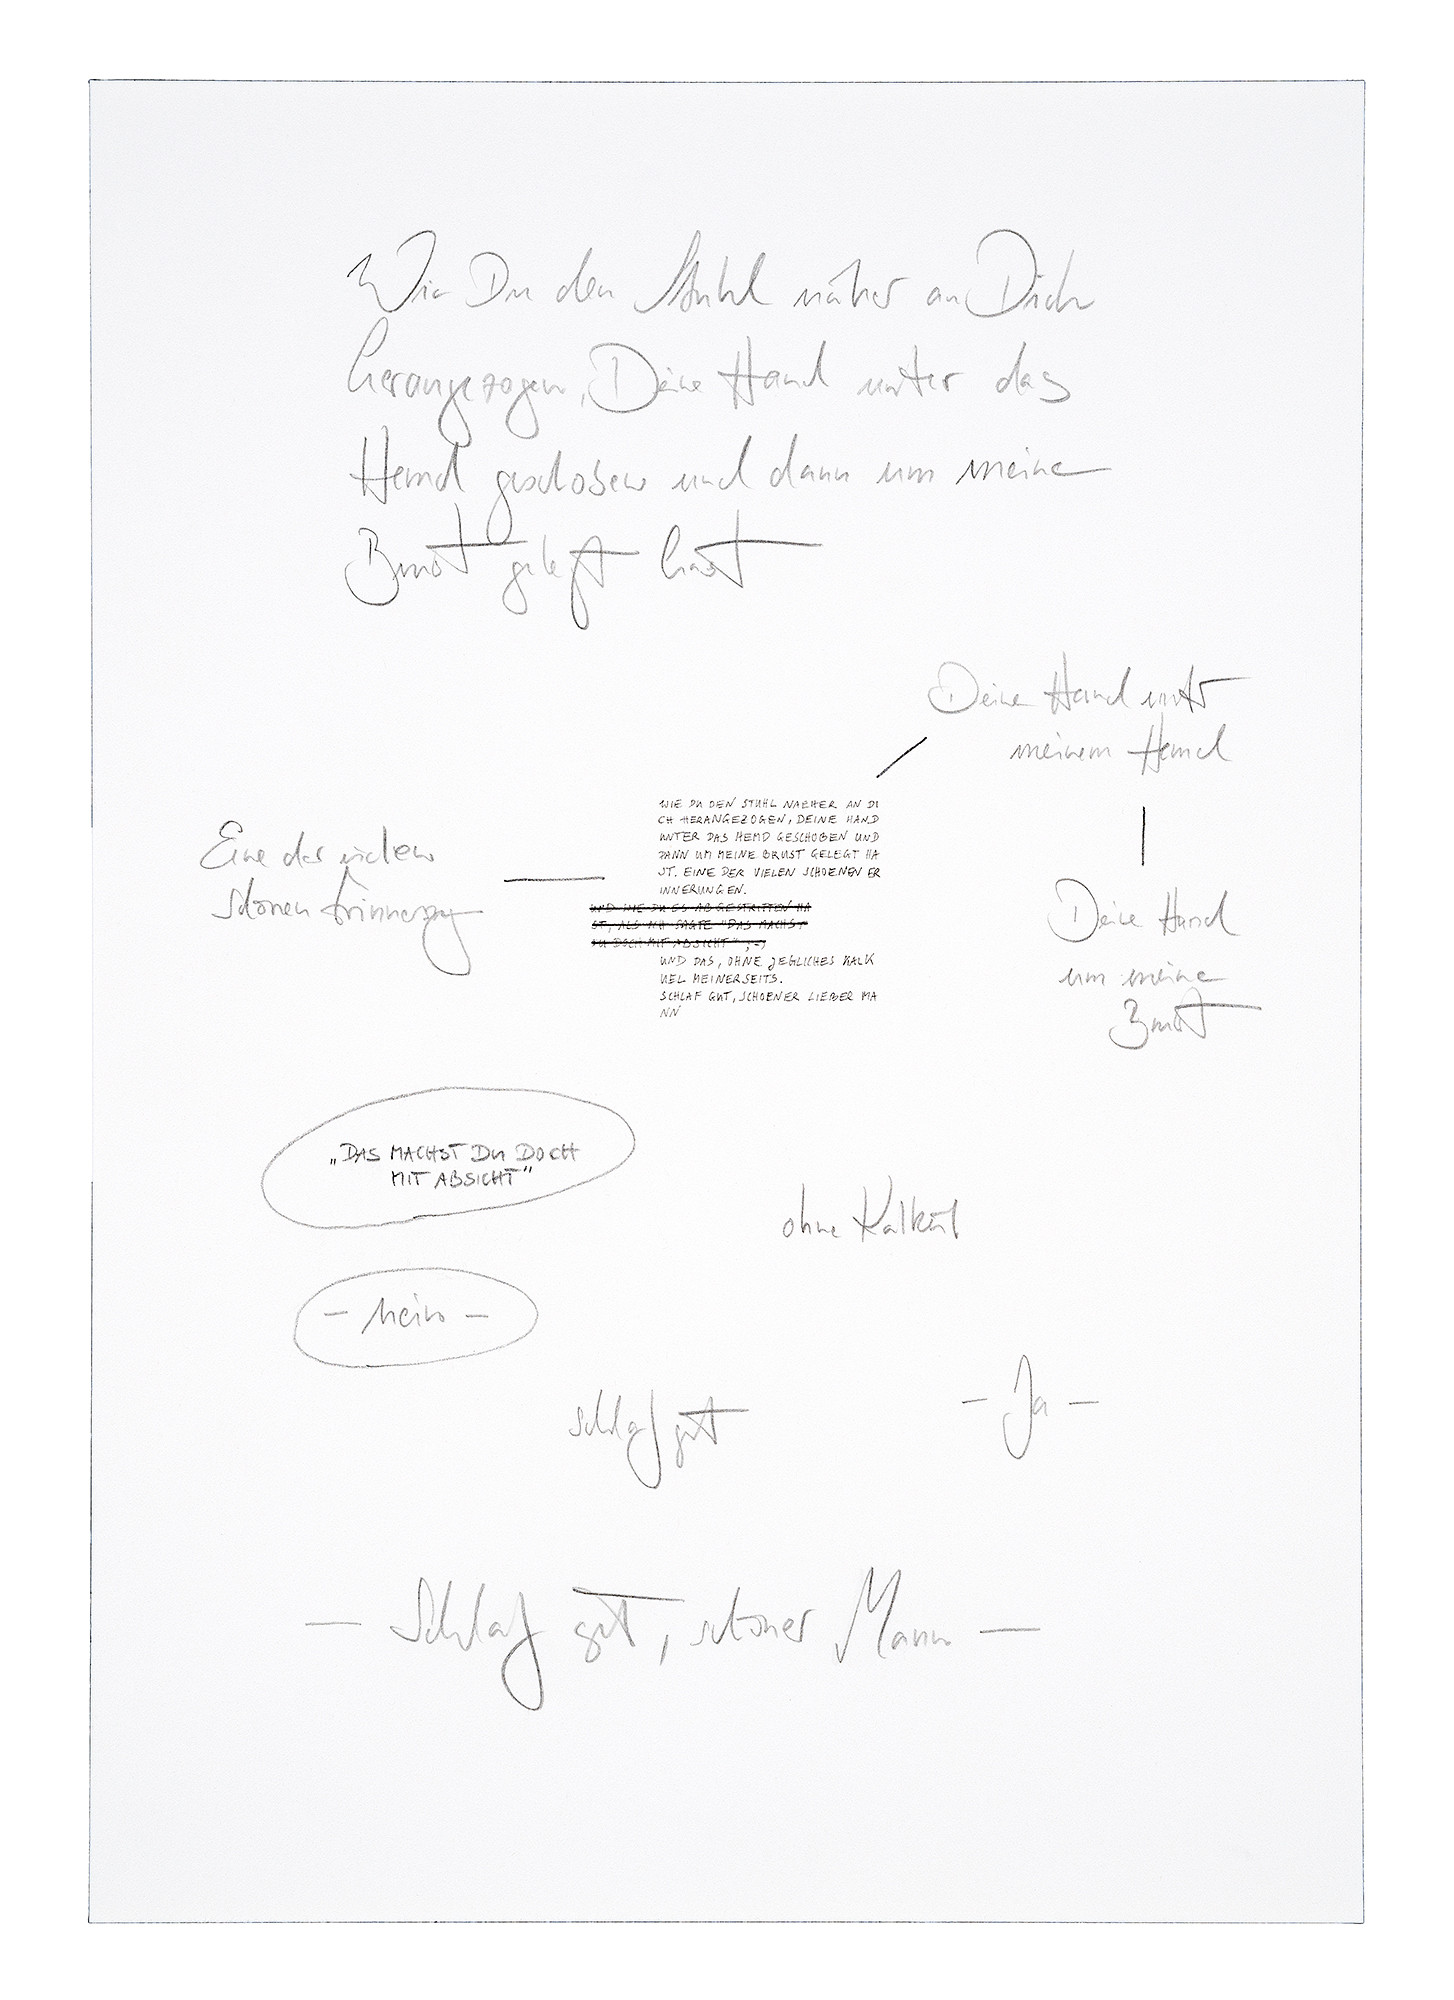 Wie Du den Stuhl näher an Dich
herangezogen, Deine Hand unter das
Hemd geschoben und dann um meine
Brust gelegt hast
Deine Hand unter
meinem Hemd
WIE DU DEN STUHL NAEHER AN DI
CH HERANGEZOGEN, DEINE HAND
UNTER DAS HEMD GESCHOBEN UND
DANN UM MEINE BRUST GELEGT HA
ST. EINE DER VIELEN SCHOENEN ER
INNERUNGEN.
UND WIE DU ES ABGESTRITTEN HA
ST, ALS ICH SAGTE "DAS MACHST
DU DOCH MIT ABSICHT" ;-)
UND DAS, OHNE JEGLICHES KALK
UEL MEINERSEITS.
SCHLAF GUT, SCHOENER LIEBER MA
NN
Eine der vielen
schönen Erinnerung
Deine Hand
um meine
Brust
„DAS MACHST DU DOCH
MIT ABSICHT"
ohne Kalkül
- Nein -
schlaf gut
- Ja -
- Schlaf gut, schöner Mann -